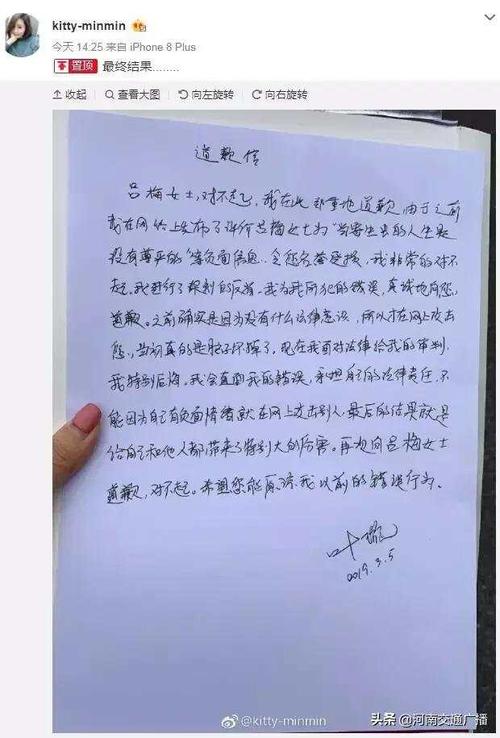 kitty-minmin
今天 14:25 来自 iPhone 8 Plus
置顶 最终结果........
收起 查看大图 向左旋转 向右旋转
道歉信
吕梅女士,对不起,我在此郑重地道歉,由于之前
我在网络上发布了评价吕梅女士为"当寄生虫的人生是
没有尊严的"等负面信息,令您名誉受损,我非常的对不
起。我进行了深刻的反省,我为我所犯的错误,真诚地向您
道歉。之前确实是因为没有什么法律意识,所以才在网上攻击
您,当初真的是脑子坏掉了。现在我面对法律给我的审判
我特别后悔,我会直面我的错误,承担自己的法律责任,不
能因为自己有负面情绪就在网上攻击别人,最后的结果就是
给自己和他人都带来了特别大的伤害。再次向吕梅女士
道歉,对不起。希望您能原谅我以前的错误行为。
叶璇
2019.3.5
@kitty-minmin
头条@河南交通广播